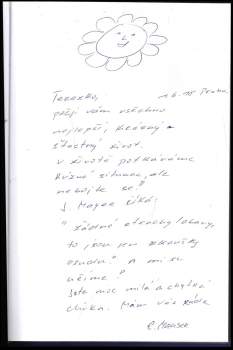 Terezko, 1.6.18 Praha
přeji vám všechno
nejlepší, krásný
šťastný život.
v životě potkáváme
různé situace, ale
nebojte se!
J. Mayer říká:
"žádné strachy / obavy,
to jsou jen zkoušky
osudu" A mi se
učíme!
Jste moc milá a chytrá
dívka. Mám vás ráda